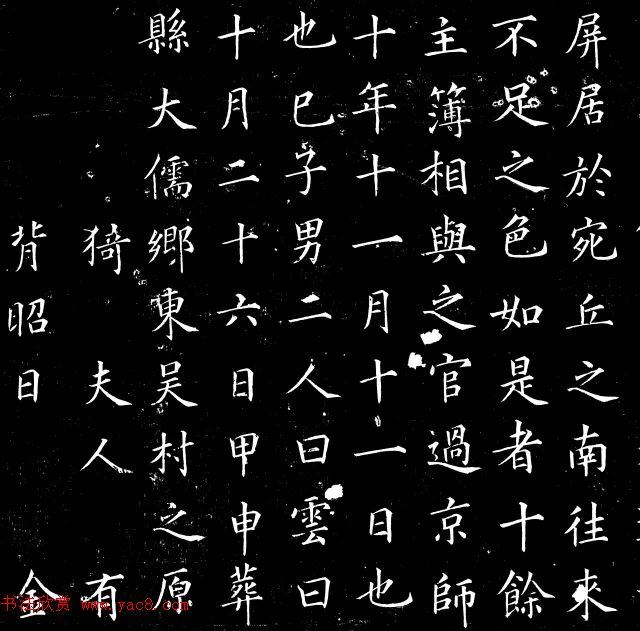 屏居於宛丘之南往來
不足之色如是者十餘
主簿相與之官過京師
十年十一月十一日也
也巳子男二人曰雲曰
十月二十六日甲申葬
縣大儒鄉東吳村之原
猗 夫人 有
昭日 金
书法欣赏 www.yac8.com